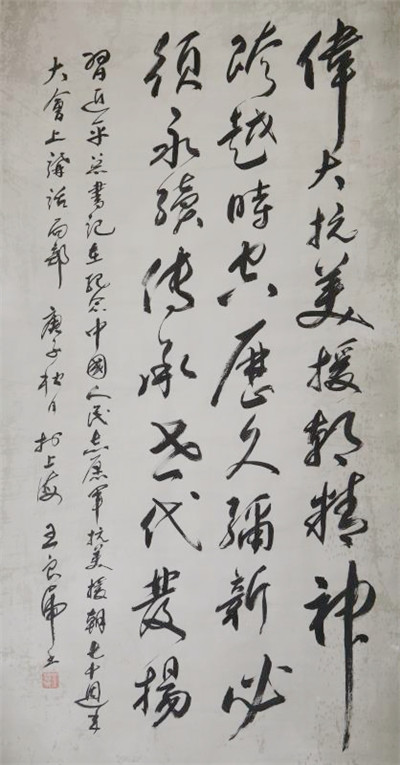 偉大抗美援朝精神
跨越時空歷久彌新必
須永續傳承世代發揚
習近平總書記在紀念中國人民志愿軍抗美援朝七十週年
大會上講話 庚子秋日於上海 王良虎書